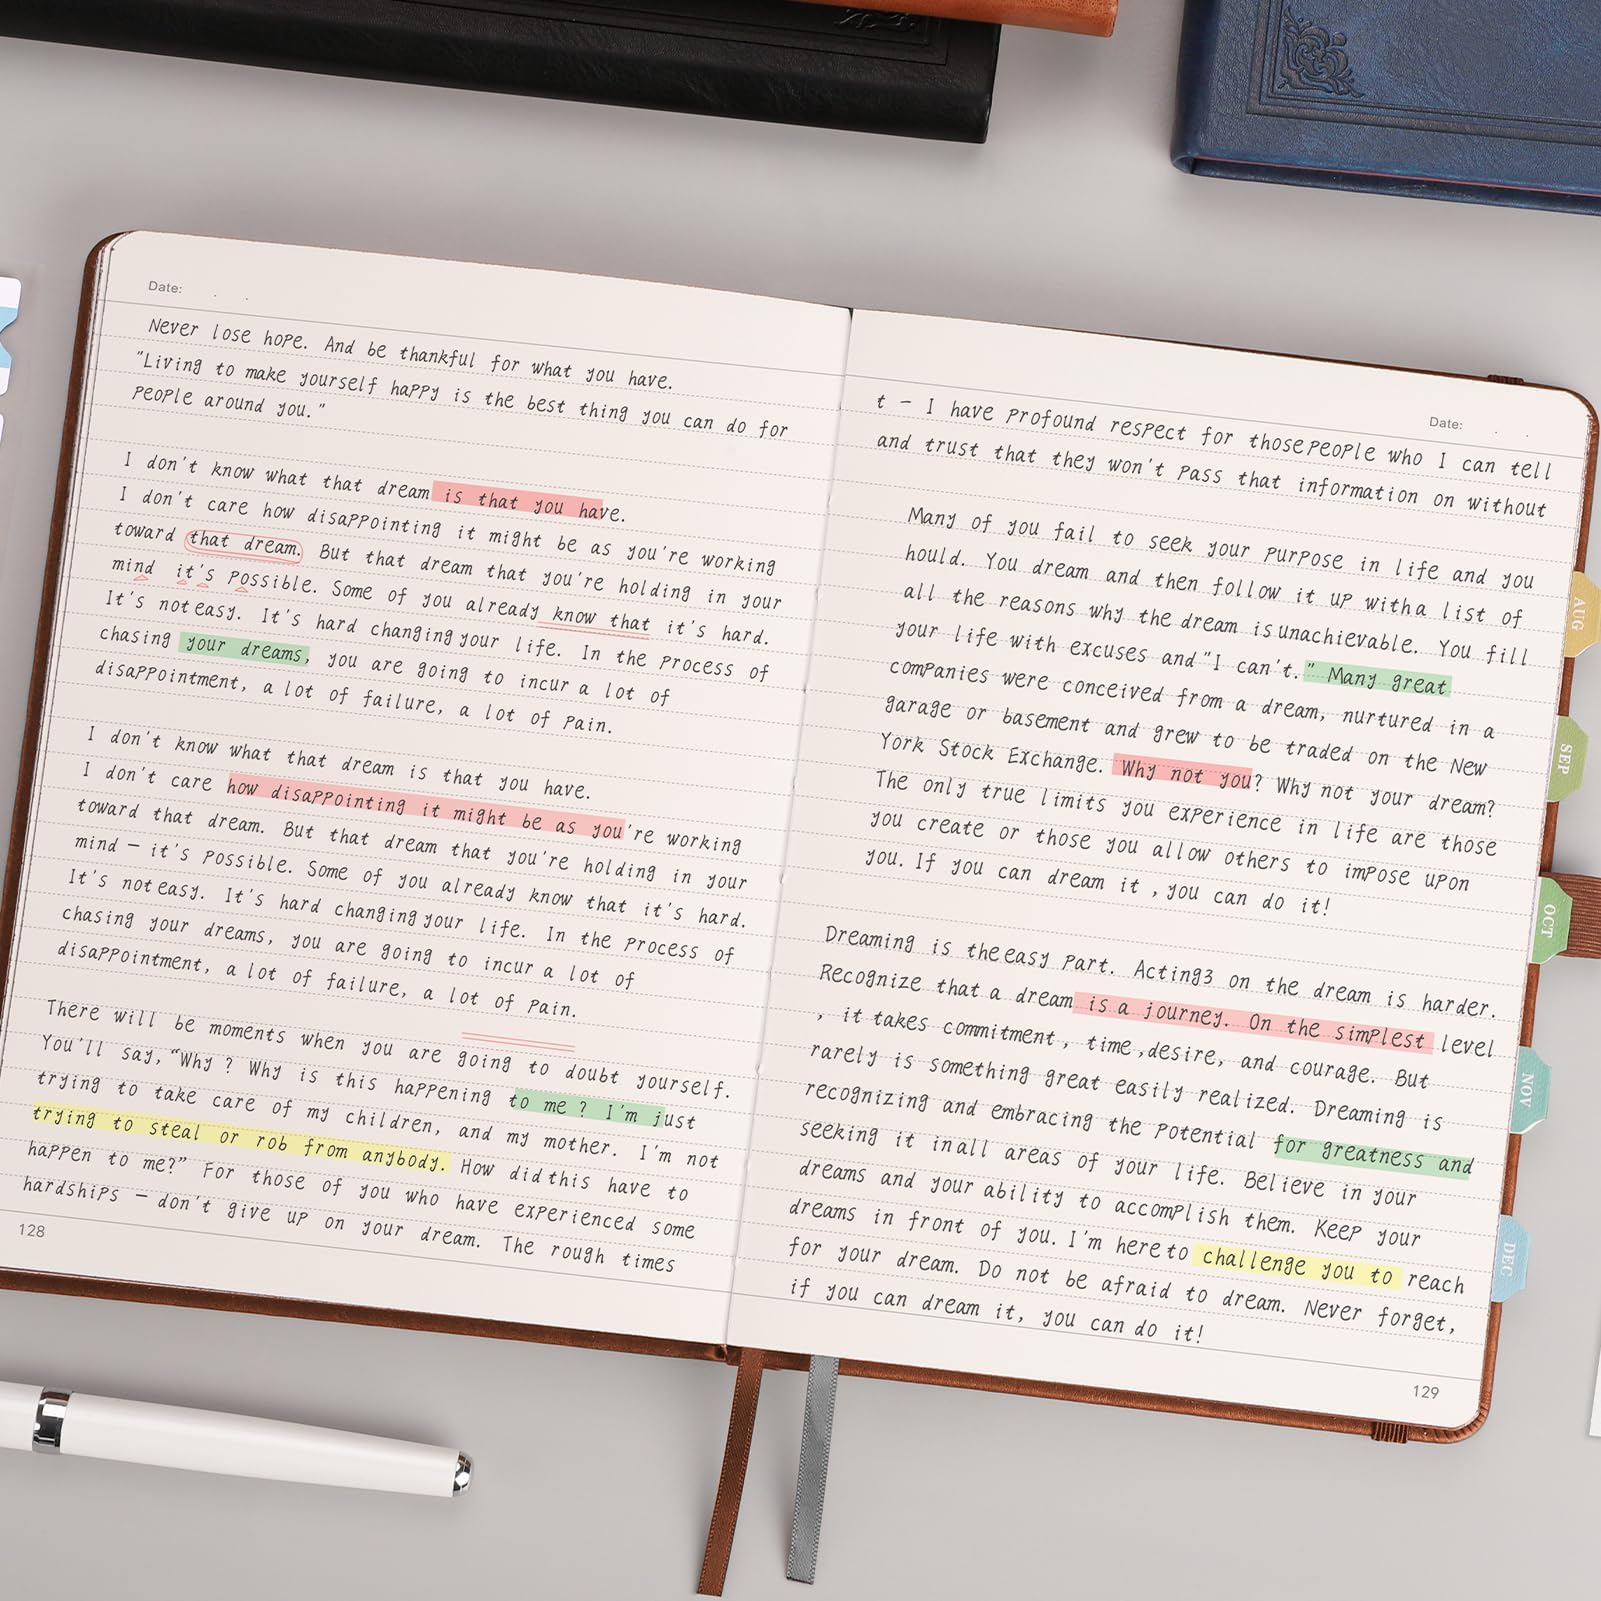 Date:
Never lose hope. And be thankful for what you have.
"Living to make yourself happy is the best thing you can do for
people around you."
I don't know what that dream is that you have.
I don't care how disappointing it might be as you're working
toward that dream. But that dream that you're holding in your
mind it's possible. Some of you already know that it's hard.
It's not easy. It's hard changing your life. In the process of
chasing your dreams, you are going to incur a lot of
disappointment, a lot of failure, a lot of pain.
I don't know what that dream is that you have.
I don't care how disappointing it might be as you're working
toward that dream. But that dream that you're holding in your
mind – it's possible. Some of you already know that it's hard.
It's not easy. It's hard changing your life. In the process of
chasing your dreams, you are going to incur a lot of
disappointment, a lot of failure, a lot of pain.
There will be moments when you are going to doubt yourself.
You'll say, "Why ? Why is this happening to me ? I'm just
trying to take care of my children, and my mother. I'm not
trying to steal or rob from anybody. How did this have to
happen to me?" For those of you who have experienced some
hardships – don't give up on your dream. The rough times
128
Date:
t – I have profound respect for those people who I can tell
and trust that they won't pass that information on without
Many of you fail to seek your purpose in life and you
hould. You dream and then follow it up with a list of
all the reasons why the dream is unachievable. You fill
your life with excuses and "I can't." Many great
companies were conceived from a dream, nurtured in a
garage or basement and grew to be traded on the New
York Stock Exchange. Why not you? Why not your dream?
The only true limits you experience in life are those
you create or those you allow others to impose upon
you. If you can dream it , you can do it!
Dreaming is the easy part. Acting3 on the dream is harder.
Recognize that a dream is a journey. On the simplest level
, it takes commitment, time , desire, and courage. But
rarely is something great easily realized. Dreaming is
recognizing and embracing the potential for greatness and
seeking it in all areas of your life. Believe in your
dreams and your ability to accomplish them. Keep your
dreams in front of you. I'm here to challenge you to reach
for your dream. Do not be afraid to dream. Never forget,
if you can dream it, you can do it!
129
AUG
SEP
OCT
NOV
DEC